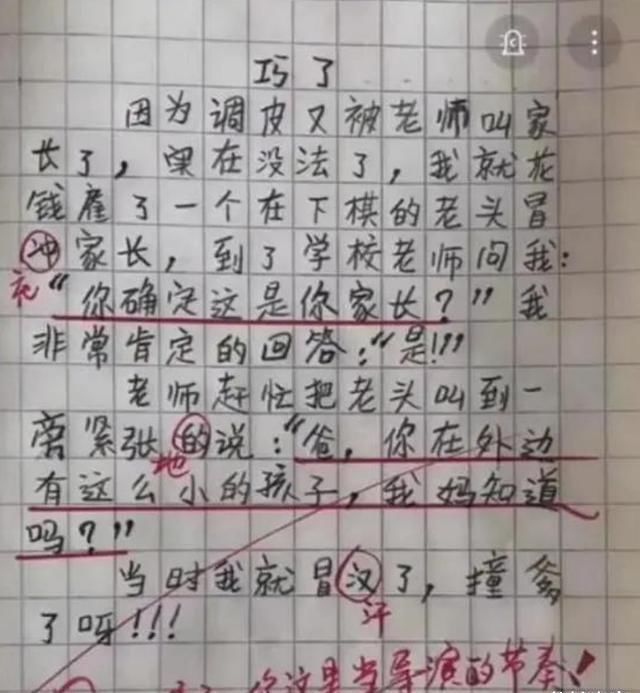 巧了
因为调皮又被老师叫家
长了，实在没法了，我就花
钱雇了一个在下棋的老头冒
冲家长，到了学校老师问我：
充
“你确定这是你家长？”我
非常肯定的回答：“是!!!
老师赶忙把老头叫到一
旁紧张的说：“爸，你在外边
地
有这么小的孩子，我妈知道
吗？”
当时我就冒汉了，撞爹
汗
了呀!!!
你这是当导演的节奏！